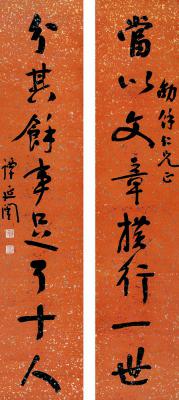 當以文章橫行一世
仁兄正
分其餘事足了十人
譚延闓